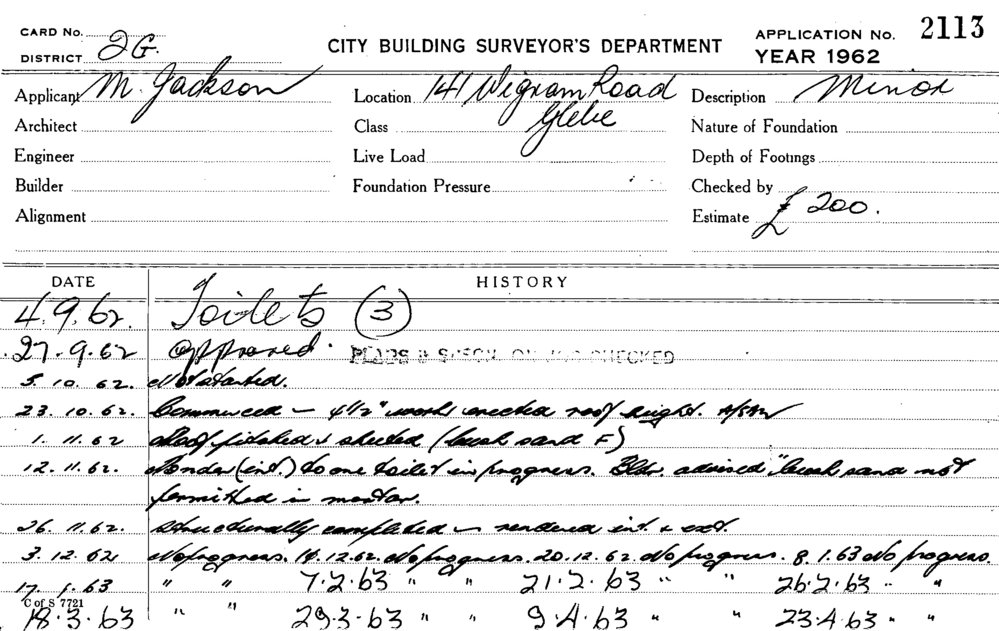 CARD No.
DISTRICT 2G.
CITY BUILDING SURVEYOR'S DEPARTMENT
APPLICATION No. 2113
YEAR 1962
Applicant M. Jackson Location 141 Wigram Road Description Minor
Architect Class Glebe Nature of Foundation
Engineer Live Load Depth of Footings
Builder Foundation Pressure Checked by
Alignment Estimate £ 200.
DATE HISTORY
4.9.62. Toilets (3)
27.9.62 approved. PLANS & SPECN. ON JOB CHECKED
5.10.62. Not started.
23.10.62. Commenced – 4½" work erected roof height.
1.11.62 Roof pitched & sheeted (bush sand F)
12.11.62. Render (int.) to one toilet in progress. Bldr. advised "bush sand not
permitted in mortar.
26.11.62. Structurally completed – rendered int. & ext.
3.12.62 No progress. 14.12.62. No progress. 20.12.62. No progress. 8.1.63 No progress.
17.1.63 " " 7.2.63 " " 21.2.63 " " 26.2.63 " "
C of S 7721
18.3.63 " " 29.3.63 " " 9.4.63 " " 23.4.63 " "